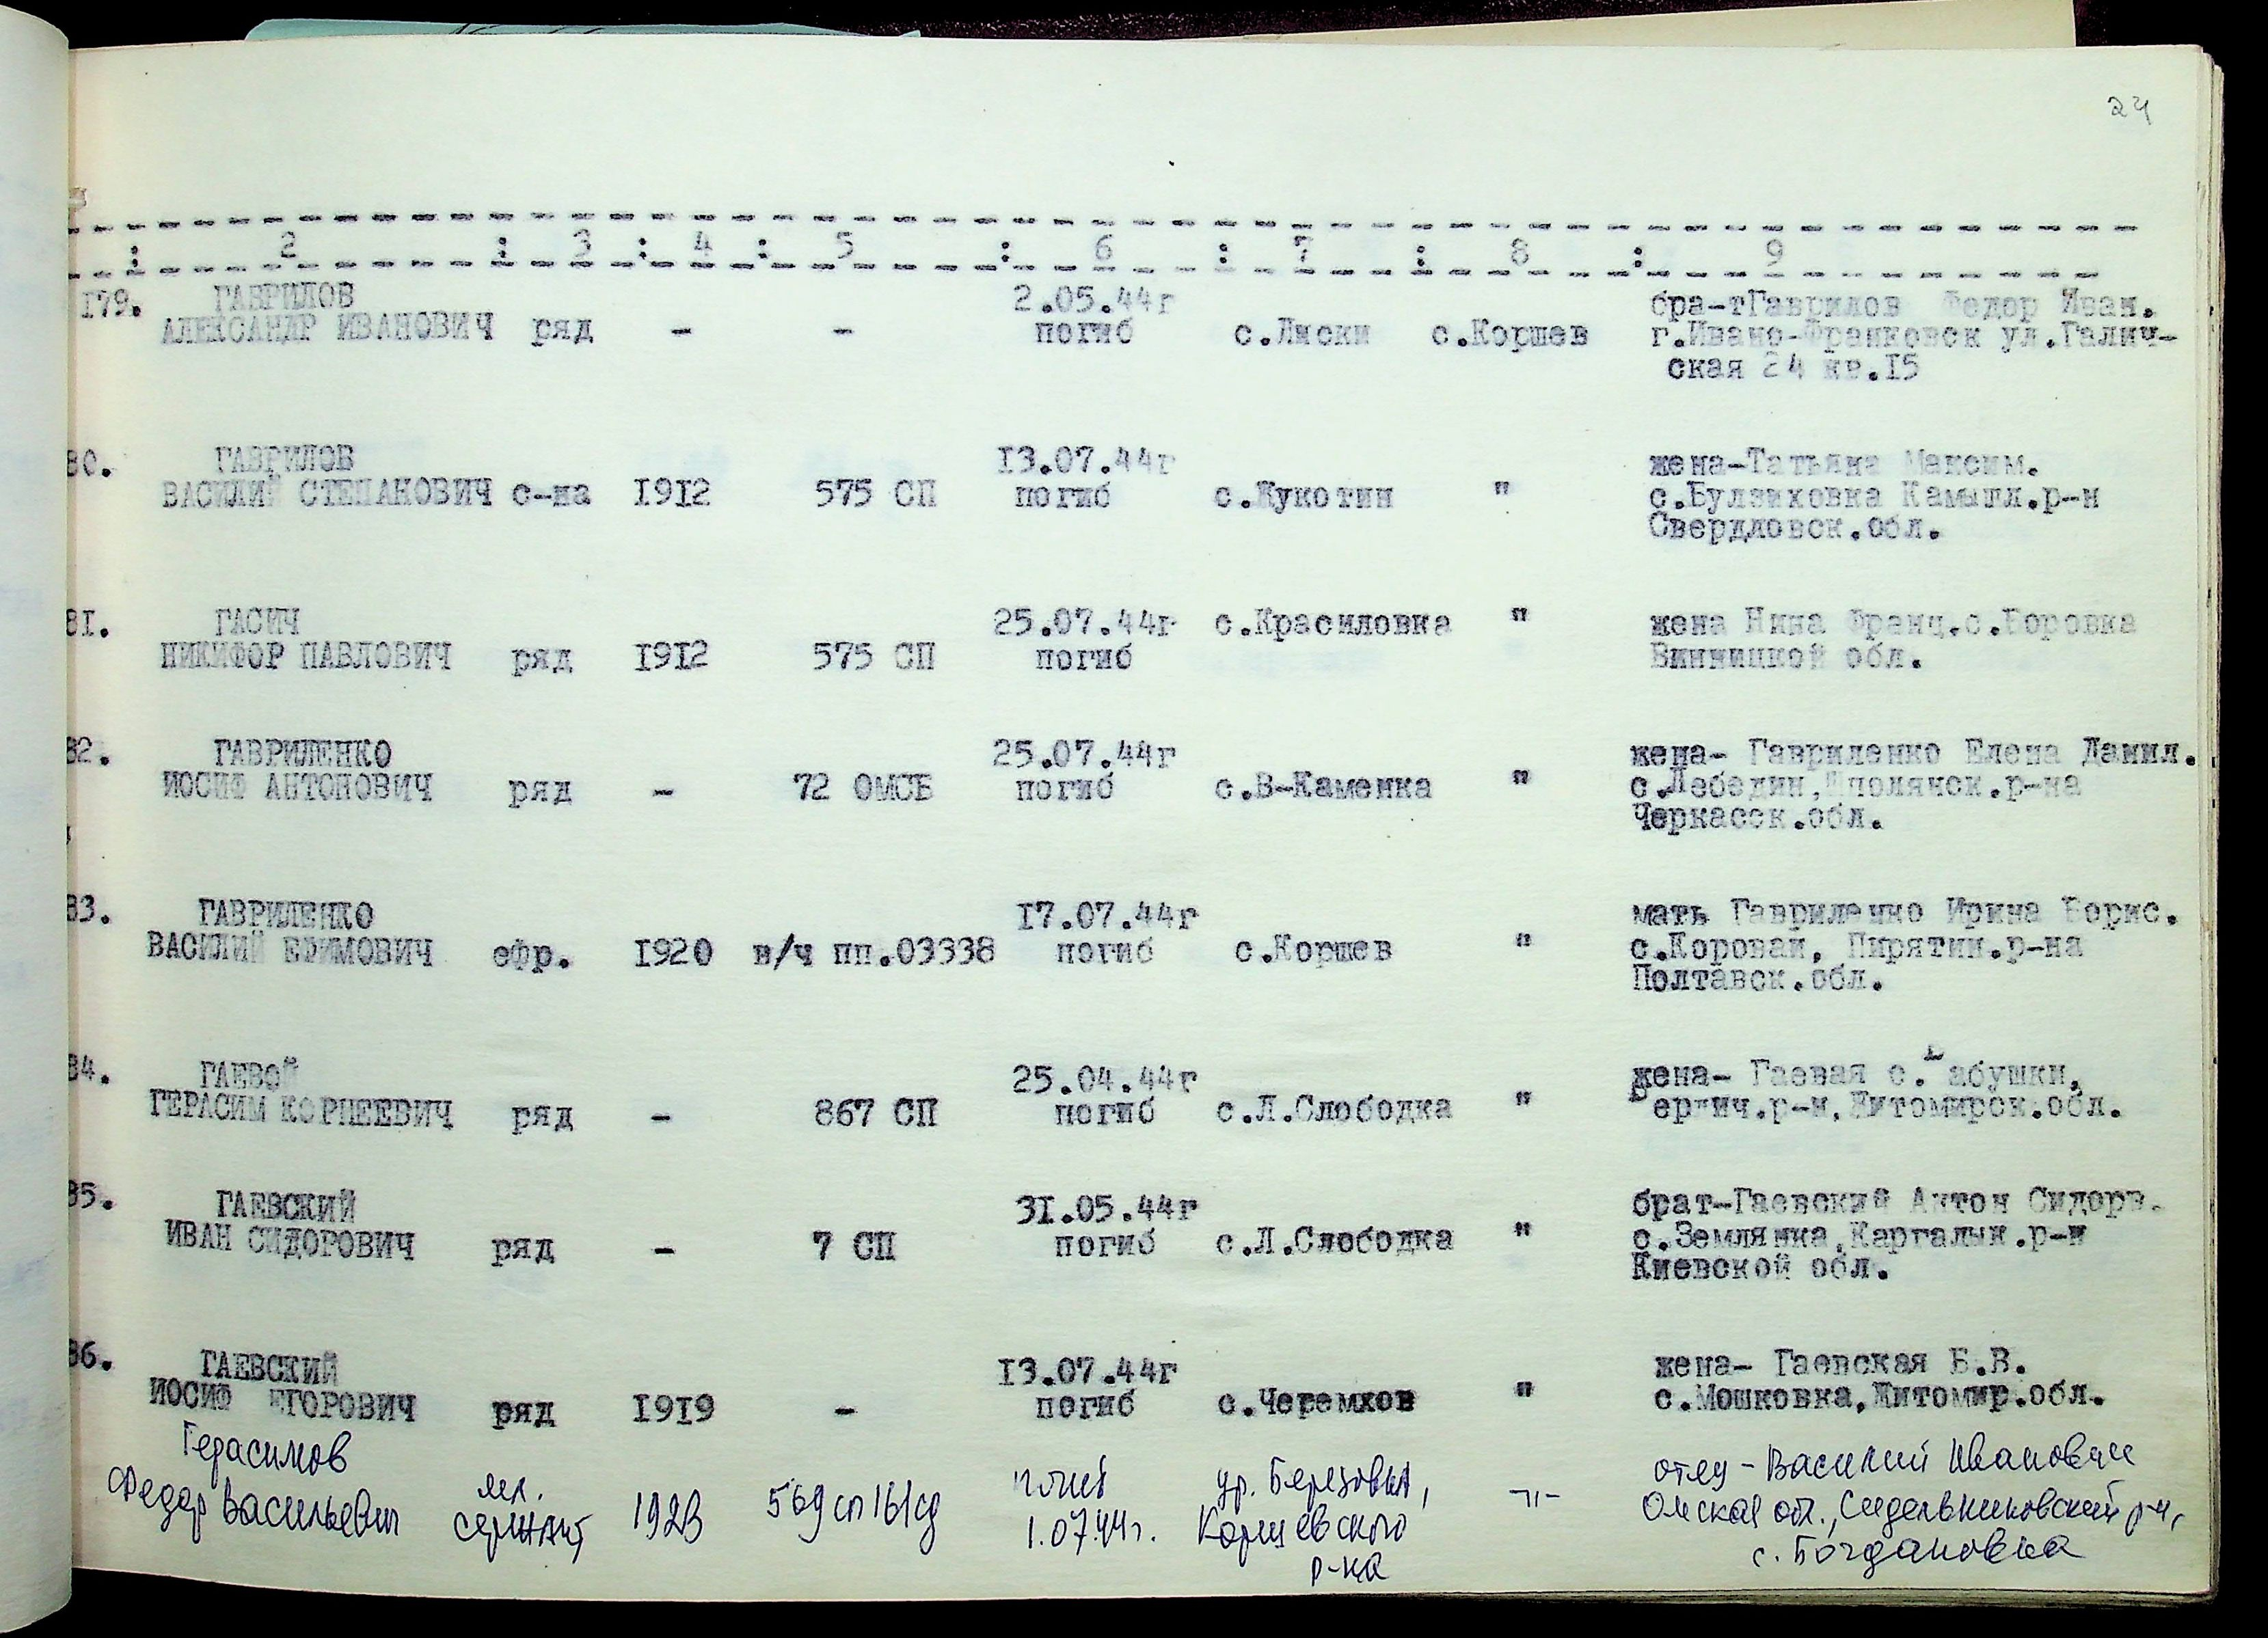 24
: 2 : 3 : 4 : 5 : 6 : 7 : 8 : 9
179. ГАВРИЛОВ 2.05.44г бра-тГаврилов Федор Иван.
АЛЕКСАНДР ИВАНОВИЧ ряд - - погиб с.Лиски с.Коршев г.Ивано-Франковск ул.Галич-
ская 24 кв.15
80. ГАВРИЛОВ 13.07.44г жена-Татьяна Максим.
ВАСИЛИЙ СТЕПАНОВИЧ с-на 1912 575 СП погиб с.Кукотин " Камышл.р-н
Свердловск.обл.
81. ГАСИЧ 25.07.44г с.Красиловка " жена Нина Франц.с.Боровка
НИКИФОР ПАВЛОВИЧ ряд 1912 575 СП погиб Винницкой обл.
82. ГАВРИЛЕНКО 25.07.44г жена- Гавриленко Елена Данил.
ИОСИФ АНТОНОВИЧ ряд - 72 ОМСБ погиб с.В-Каменка " с.Лебедин,Шполянск.р-на
Черкасск.обл.
83. ГАВРИЛЕНКО 17.07.44г мать Гавриленко Ирина Борис.
ВАСИЛИЙ ЕФИМОВИЧ ефр. 1920 в/ч пп.03338 погиб с.Коршев " с.Короваи, Пирятин.р-на
Полтавск.обл.
84. ГАЕВОЙ 25.04.44г жена- Гаевая с. абушки,
ГЕРАСИМ КОРНЕЕВИЧ ряд - 867 СП погиб с.Л.Слободка " р-н,Житомирск.обл.
85. ГАЕВСКИЙ 31.05.44г брат-Гаевский Антон Сидорв.
ИВАН СИДОРОВИЧ ряд - 7 СП погиб с.Л.Слободка " с.Землянка,Каргалык.р-н
Киевской обл.
86. ГАЕВСКИЙ 13.07.44г жена- Гаевская Б.В.
ИОСИФ ЕГОРОВИЧ ряд 1919 - погиб с.Черемхов " с.Мошковка,Житомир.обл.
Герасимов мл. погиб ур. Березовка, отец - Василий Иванович
Федор Васильевич сержант 1923 569 сп 161 сд 1.07.44г. Коршевского -"- Омская обл., Седельниковский р-н,
р-на с. Богдановка